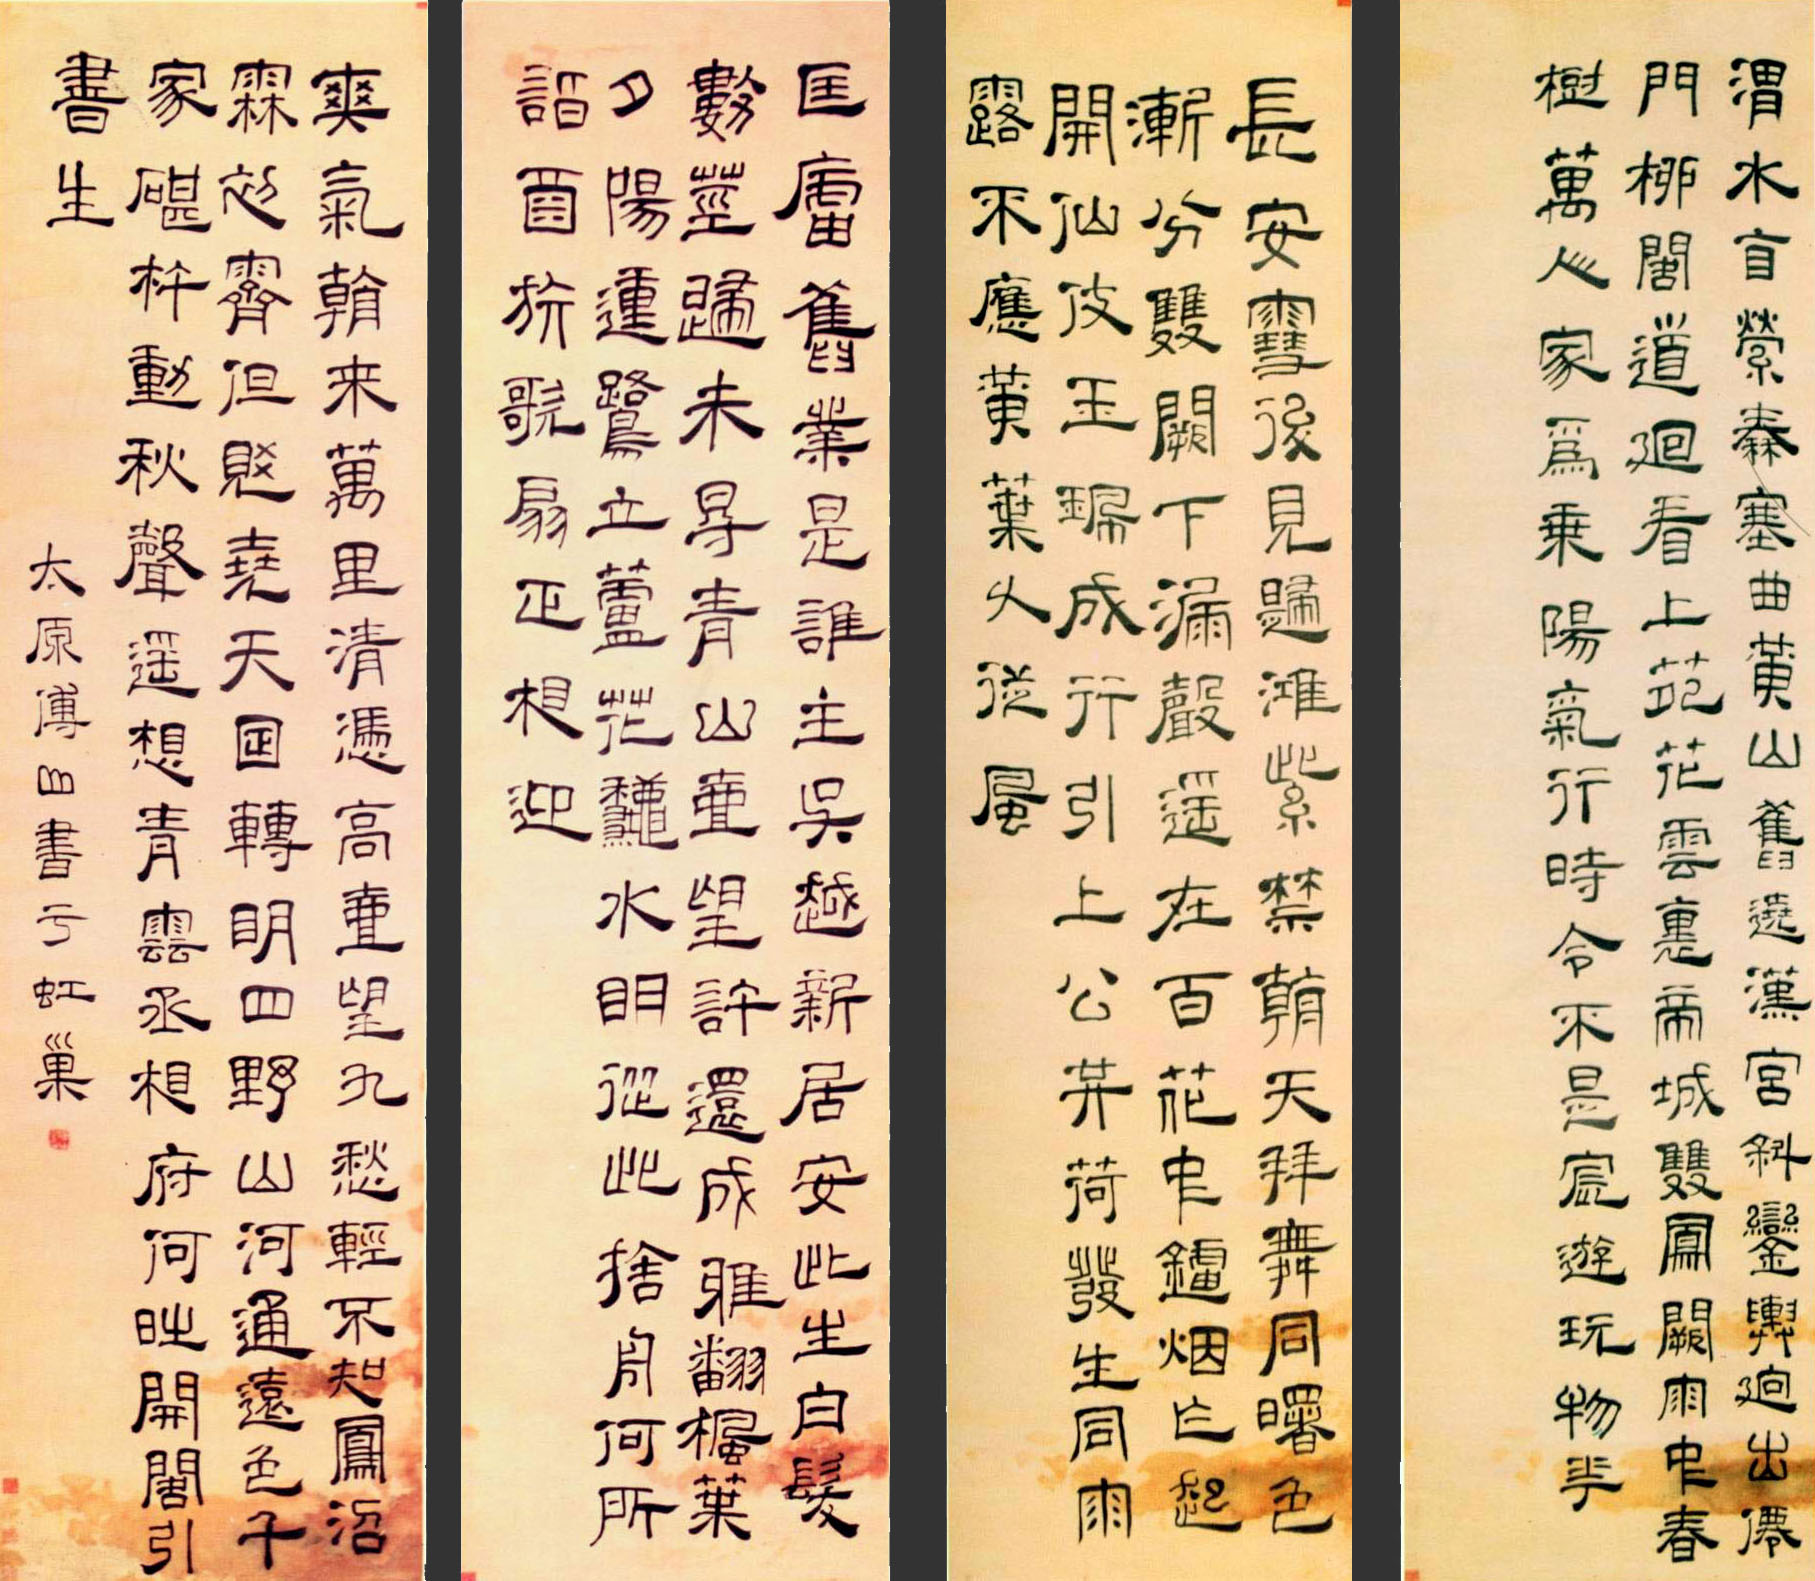 渭水自縈秦塞曲黃山舊遶漢宮斜鑾輿迥出僊
門栁閣道迴看上苑花雲裏帝城雙鳳闕雨中春
樹萬人家爲乗陽氣行時令不是宸遊玩物華
長安雪後見歸鴻紫禁朝天拜舞同曙色
漸分雙闕下漏聲遥在百花中鑪烟乍起
開仙仗玉珮成行引上公共荷發生同雨
露不應黃葉久從風
匡廬舊業是誰主吳越新居安此生白髮
數莖歸未得青山壹望許還成鴉翻楓葉
夕陽運鷺立蘆花龝水明從此捨舟何所
詣酒旂歌扇正相迎
爽氣朝来萬里清憑高壹望九愁輕不知鳳沼
霖初霽但覺堯天日轉明四野山河通遠色千
家碪杵動秋聲遥想青雲丞相府何時開閤引
書生
太原傅山書于虹巢